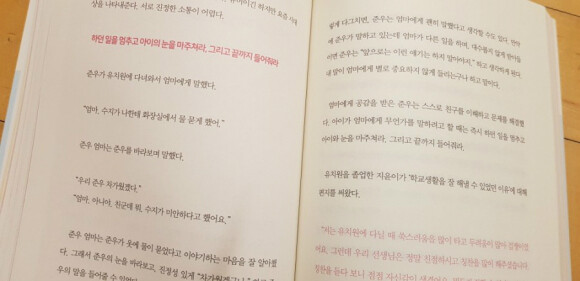 상을 나타내준다. 서로 진정한 소통이 어렵다.
하던 일을 멈추고 아이의 눈을 마주쳐라, 그리고 끝까지 들어줘라
준우가 유치원에 다녀와서 엄마에게 말했다.
"엄마, 수지가 나한테 화장실에서 물 묻게 했어."
준우 엄마는 준우를 바라보며 말했다.
"우리 준우 차가웠겠다."
"엄마, 아니야. 친군데 뭐, 수지가 미안하다고 했어요."
준우 엄마는 준우가 옷에 물이 묻었다고 이야기하는 마음을 잘 알아챘
다. 그래서 준우의 눈을 바라보고, 진심성 있게
우의 말을 들어줄 수 있었다
렇게 다그치면, 준우는 엄마에게 괜히 말했다고 생각할 수도 있다. 만약
에 준우가 말하고 있는데 엄마가 다른 일을 하며, 대수롭지 않게
이면 준우는 "앞으로는 이런 얘기는 하지 말아야지." 하고 생각하게 된다.
내 말이 엄마에게 별로 중요하지 않게 들리는구나 하고 말이다.
엄마에게 공감을 받은 준우는 스스로 친구를 이해하고 문제를 해결했
다. 아이가 엄마에게 무언가를 말하려고 할 때는 즉시 하던 일을 멈추고
아이와 눈을 마주쳐라. 그리고 끝까지 들어줘라.
유치원을 졸업한 지윤이가 '학교생활을 잘 해낼 수 있었던 이유'에 대해
편지를 써왔다.
"저는 유치원에 다닐 때 쑥스러움을 많이 타고 두려움이 많아
어요. 그런데 우리 선생님은 정말 친절하시고 칭찬을 많이 해주셨습니다
칭찬을 듣다 보니 점점 자신감이